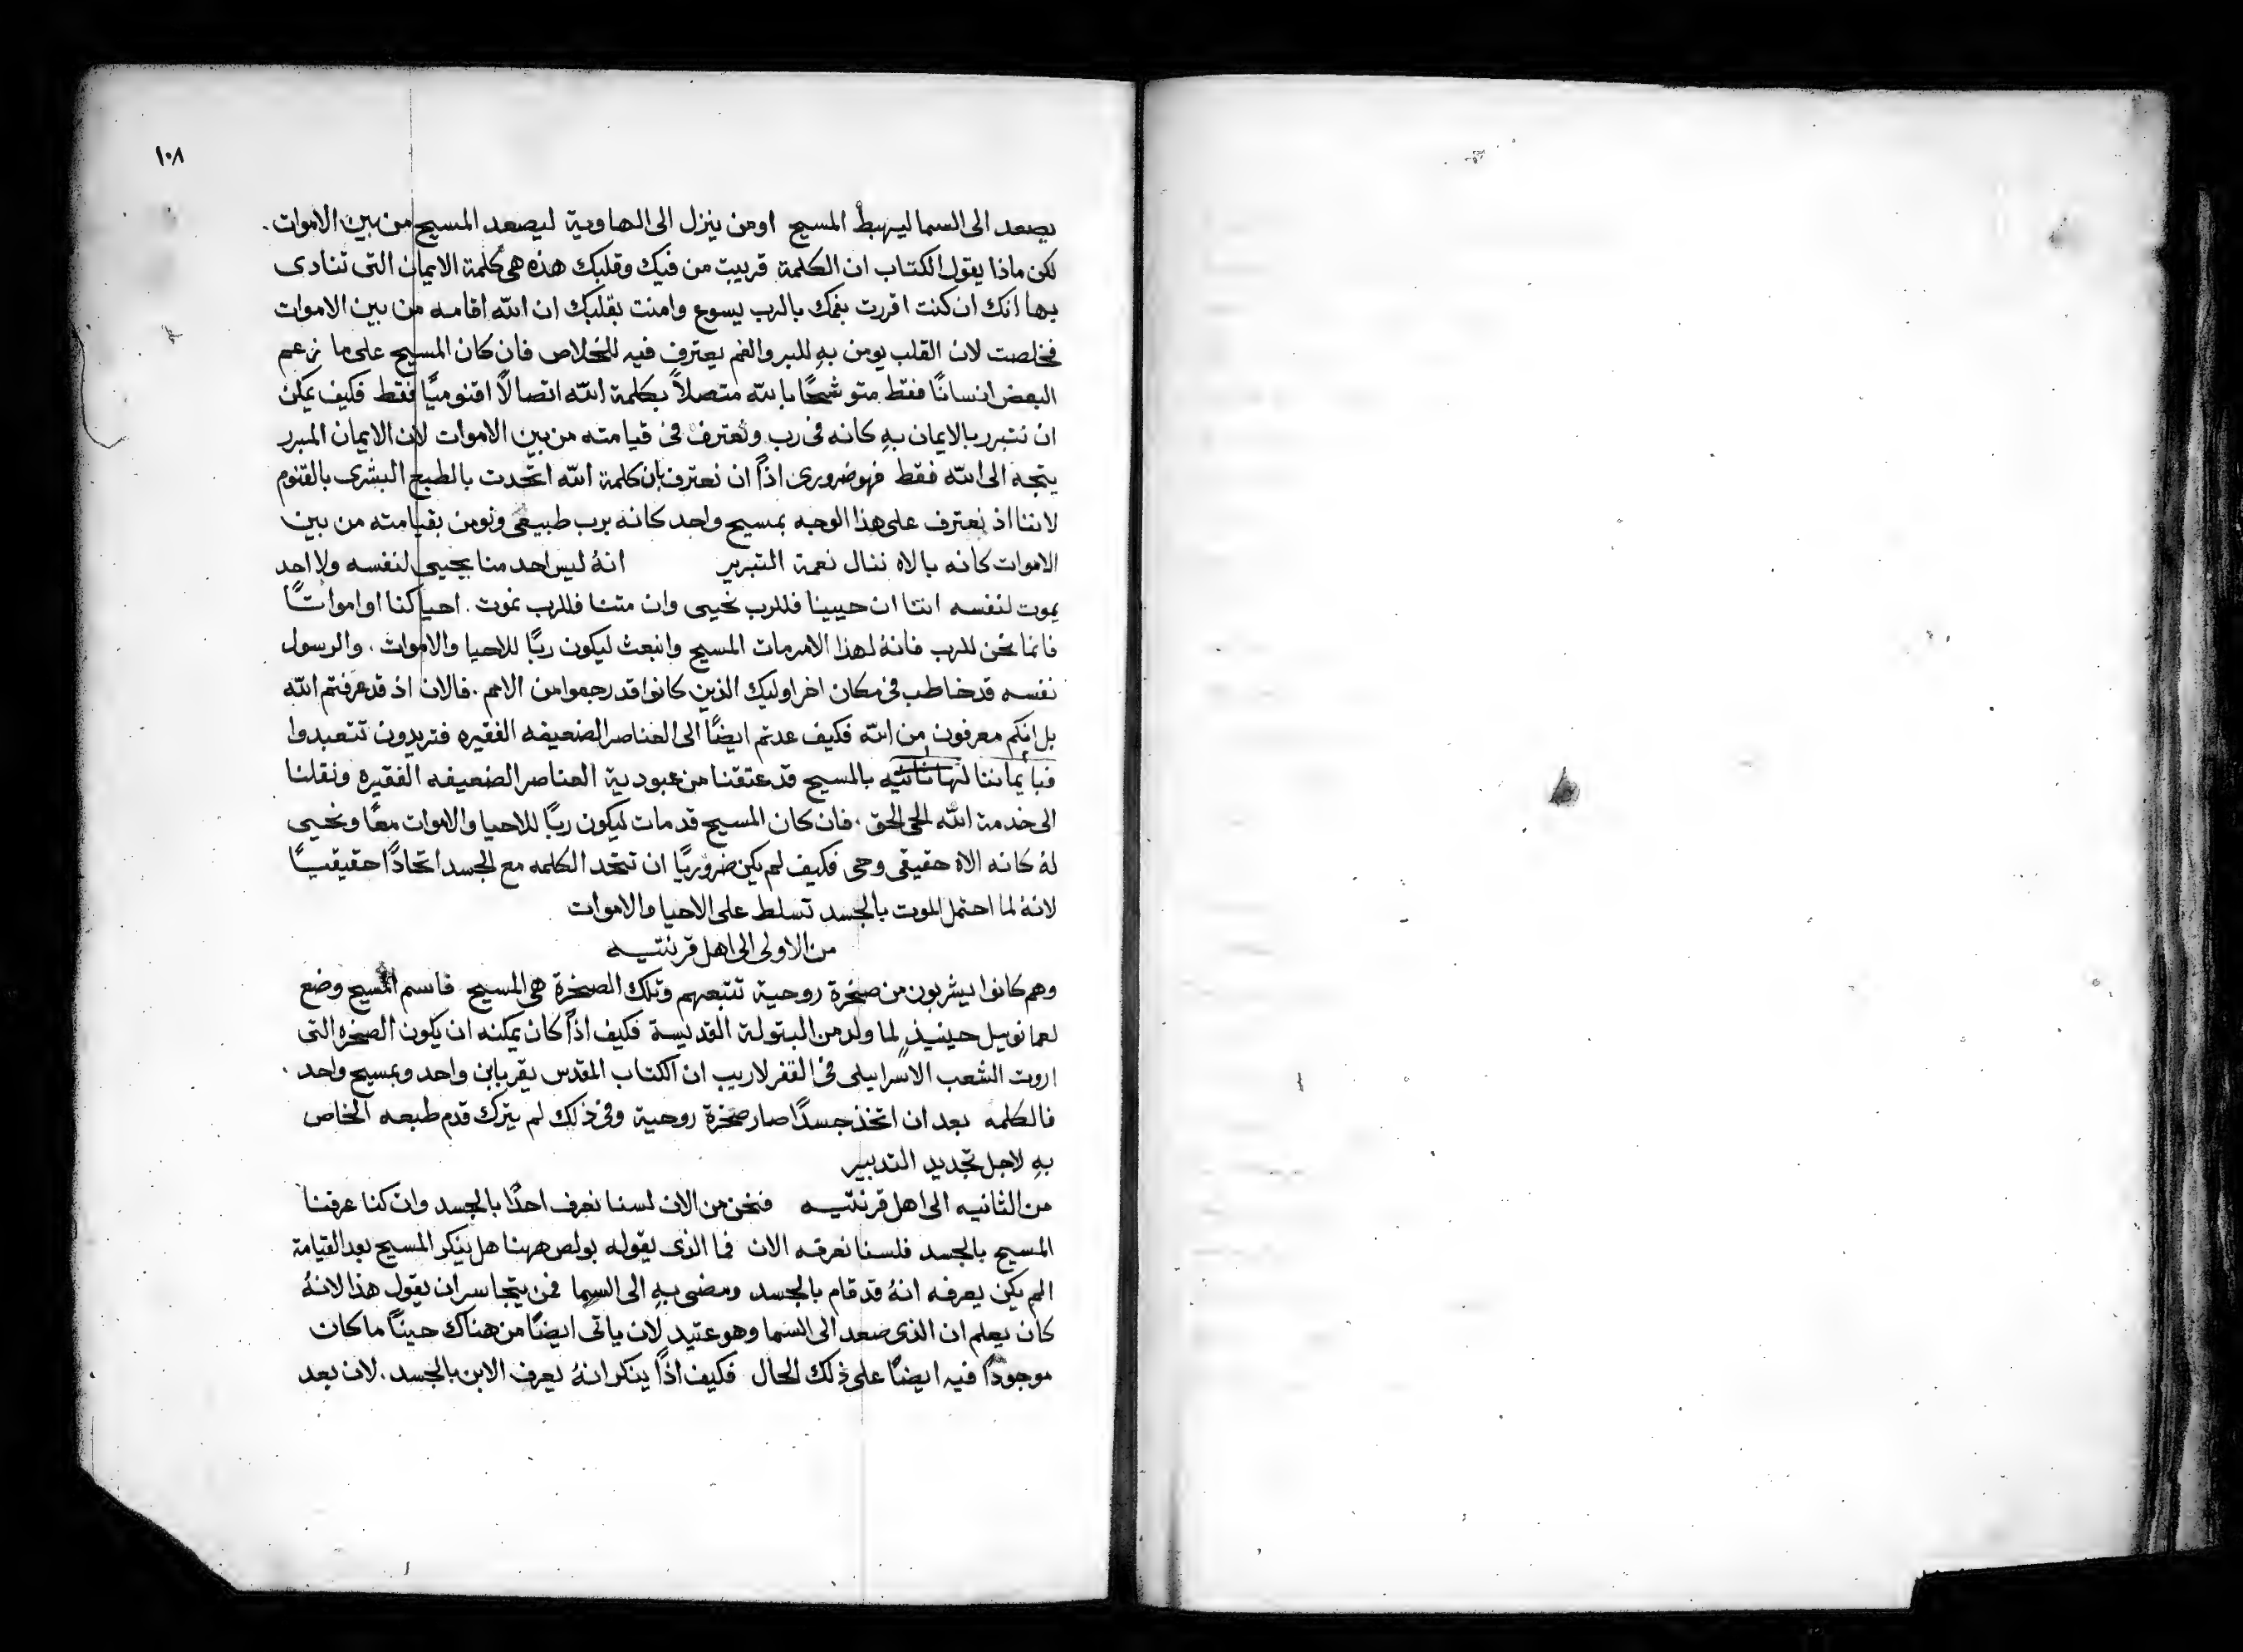 ١٠٨
يصعد الى السما ليهبط المسيح او من ينزل الى الهاوية ليصعد المسيح من بين الاموات.
لكن ماذا يقول الكتاب ان الكلمة قريبت من فيك وقلبك هذه هى كلمة الايمان التى تنادى
بها انك ان كنت اقررت بفمك بالرب يسوع وامنت بقلبك ان الله اقامه من بين الاموات
فخلصت لان القلب يومن بهِ للبر والفم يعترف فيه للخلاص فان كان المسيح على ما زعم
البعض انسانًا فقط متوشحًا بالله متصلاً بكلمة الله اتصالًا اقنوميًا فقط فكيف يمكن
ان نتبرر بالايمان بهِ كانه فى رب ونعترف فى قيامته من بين الاموات لان الايمان المبرر
يتجه الى الله فقط فهو ضرورى اذًا ان نعترف بان كلمة الله اتحدت بالطبع البشرى بالقنوم
لاننا اذ نعترف على هذا الوجه بمسيح واحد كانه برب طبيعى ونومن بقيامته من بين
الاموات كانه بالاه ننال نعمة التبرير انهُ ليس احد منا يحيى لنفسه ولا احد
يموت لنفسه اننا ان حيينا فللرب نحيى وان متنا فللرب نموت. احيا كنا او امواتًا
فانما نحن للرب فانهُ لهذا الامر مات المسيح وانبعث ليكون ربًا للاحيا والاموات. والرسول
نفسه قد خاطب فى مكان اخر اوليك الذين كانوا قد رجعوا من الامم. فالان اذ قد عرفتم الله
بل انكم معرفون من الله فكيف عدتم ايضًا الى العناصر الضعيفه الفقيره فتريدون تتعبدوا
لها ثانيه
فبايماننا بالمسيح قد عتقنا من عبودية العناصر الضعيفه الفقيره ونقلنا
الى خدمة الله الحى الحق. فان كان المسيح قد مات ليكون ربًا للاحيا والاموات معًا ونحيى
لهُ كانه الاه حقيقى وحى فكيف لم يكن ضروريًا ان تتحد الكلمه مع الجسد اتحادًا حقيقيًا
لانهُ لما احتمل الموت بالجسد تسلط على الاحيا والاموات
من الاولى الى اهل قرنتيه
وهم كانوا يشربون من صخرة روحية تتبعهم وتلك الصخرة هى المسيح فاسم المسيح وضع
لعمانوييل حينيذٍ لما ولد من البتولة القديسة فكيف اذًا كان يمكنه ان يكون الصخره التى
اروت الشعب الاسراييلى فى القفر لاريب ان الكتاب المقدس يقر بابن واحد وبمسيح واحد.
فالكلمه بعد ان اتخذ جسدًا صار صخرة روحية وفى ذلك لم يترك قدم طبعه الخاص
بهِ لاجل تجديد التدبير
من الثانيه الى اهل قرنتيه فنحن من الان لسنا نعرف احدًا بالجسد وان كنا عرفنا
المسيح بالجسد فلسنا نعرفه الان فما الذى يقوله بولص ههنا هل ينكر المسيح بعد القيامة
الم يكن يعرفه انهُ قد قام بالجسد ومضى بهِ الى السما فمن يتجاسر ان يقول هذا لانهُ
كان يعلم ان الذى صعد الى السما وهو عتيد لان ياتى ايضًا من هناك حينًا ما كان
موجودًا فيه ايضًا على ذلك الحال فكيف اذًا ينكر انهُ يعرف الابن بالجسد. لان بعد